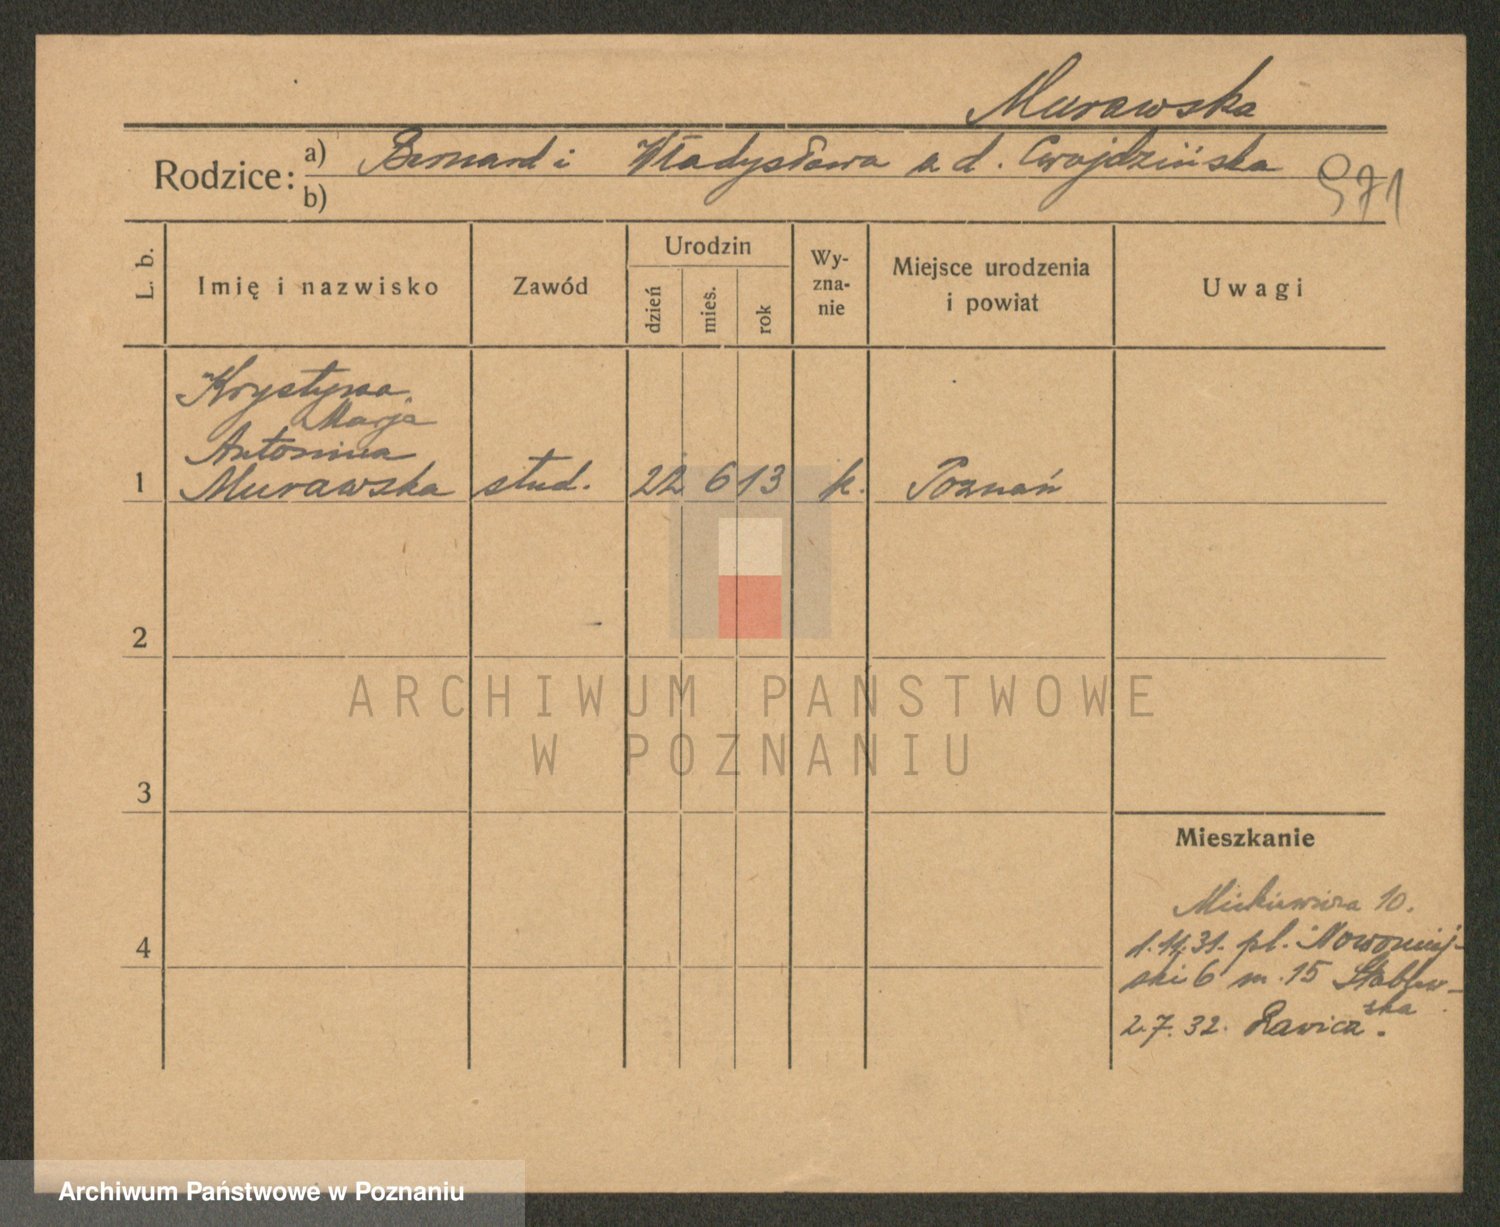 Murawska
Rodzice: a) Bernard i Władysława a d. Cwojdzińska
b)
971
L. b.
Imię i nazwisko
Zawód
Urodzin
dzień
mies.
rok
Wy-
zna-
nie
Miejsce urodzenia
i powiat
Uwagi
Krystyna
Marja
Antonina
1 Murawska stud. 22 6 13 k. Poznań
2
3
4
ARCHIWUM PAŃSTWOWE
W POZNANIU
Mieszkanie
Mickiewicza 10.
pl. Nowomiej-
ski 6 m. 15 Stablew-
ska
2.7.32. Rawicz.
Archiwum Państwowe w Poznaniu